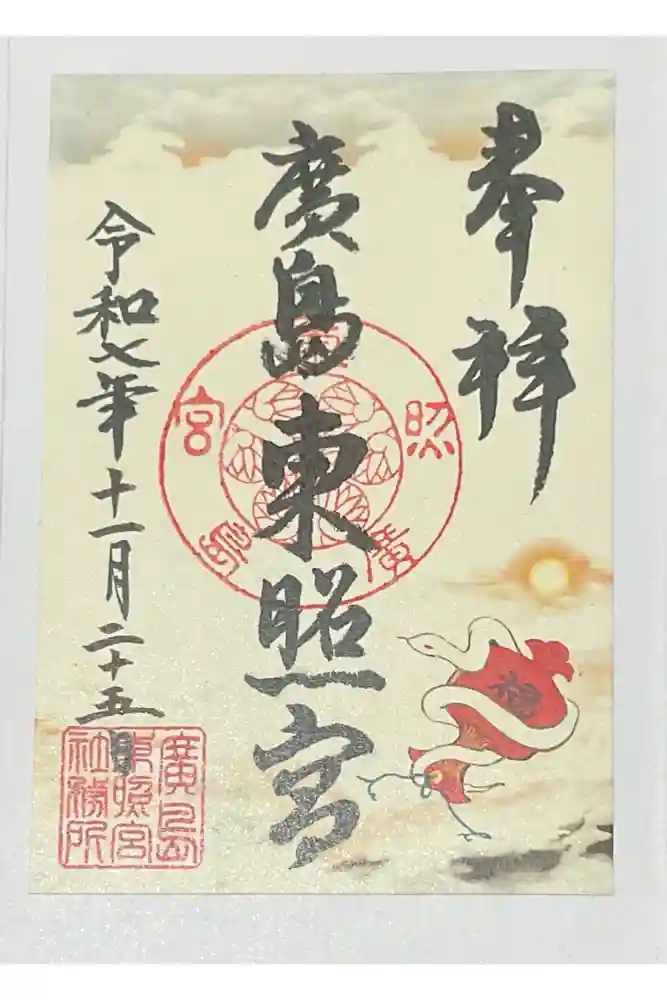 奉拝
廣島東照宮
令和七年十一月二十五日
廣島
東照宮
社務所